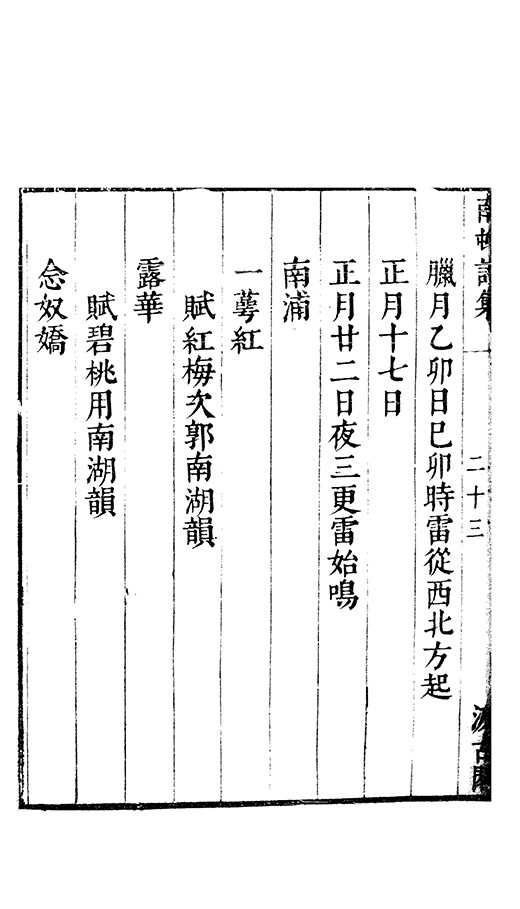 南村詩集 一 二十三 汲古閣
臘月乙卯日巳卯時雷從西北方起
正月十七日
正月廿二日夜三更雷始鳴
南浦
一蕚紅
賦紅梅次郭南湖韻
露華
賦碧桃用南湖韻
念奴嬌